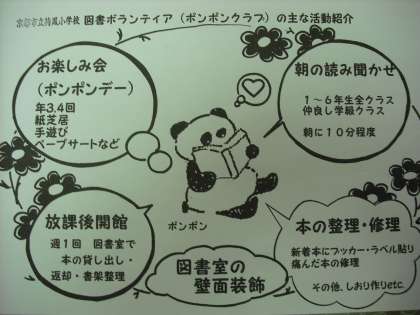 京都市立待鳳小学校 図書ボランティア（ポンポンクラブ）の主な活動紹介
お楽しみ会
（ポンポンデー）
年3.4回
紙芝居
手遊び
ペープサートなど
朝の読み聞かせ
１～６年生全クラス
仲良し学級クラス
朝に１０分程度
ポンポン
放課後開館
週１回 図書室で
本の貸し出し・
返却・書架整理
図書室の
壁面装飾
本の整理・修理
新着本にブッカー・ラベル貼り
痛んだ本の修理
その他、しおり作りetc.